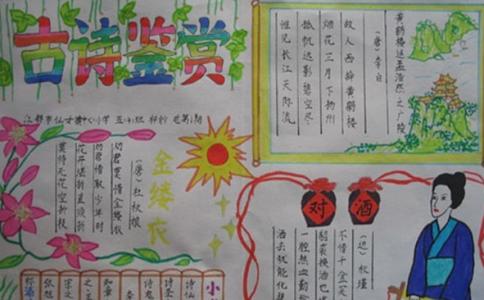 古诗鉴赏
江都市仙女镇中心小学 五(4)班
黄鹤楼送孟浩然之广陵
(唐)李白
故人西辞黄鹤楼
烟花三月下扬州
孤帆远影碧空尽
唯见长江天际流
金缕衣
(唐)杜秋娘
劝君莫惜金缕衣
劝君惜取少年时
花开堪折直须折
莫待无花空折枝
对酒
(近)秋瑾
不惜千金买
貂裘换酒也
一腔热血勤
洒去犹能化
小
诗仙
诗圣
诗鬼